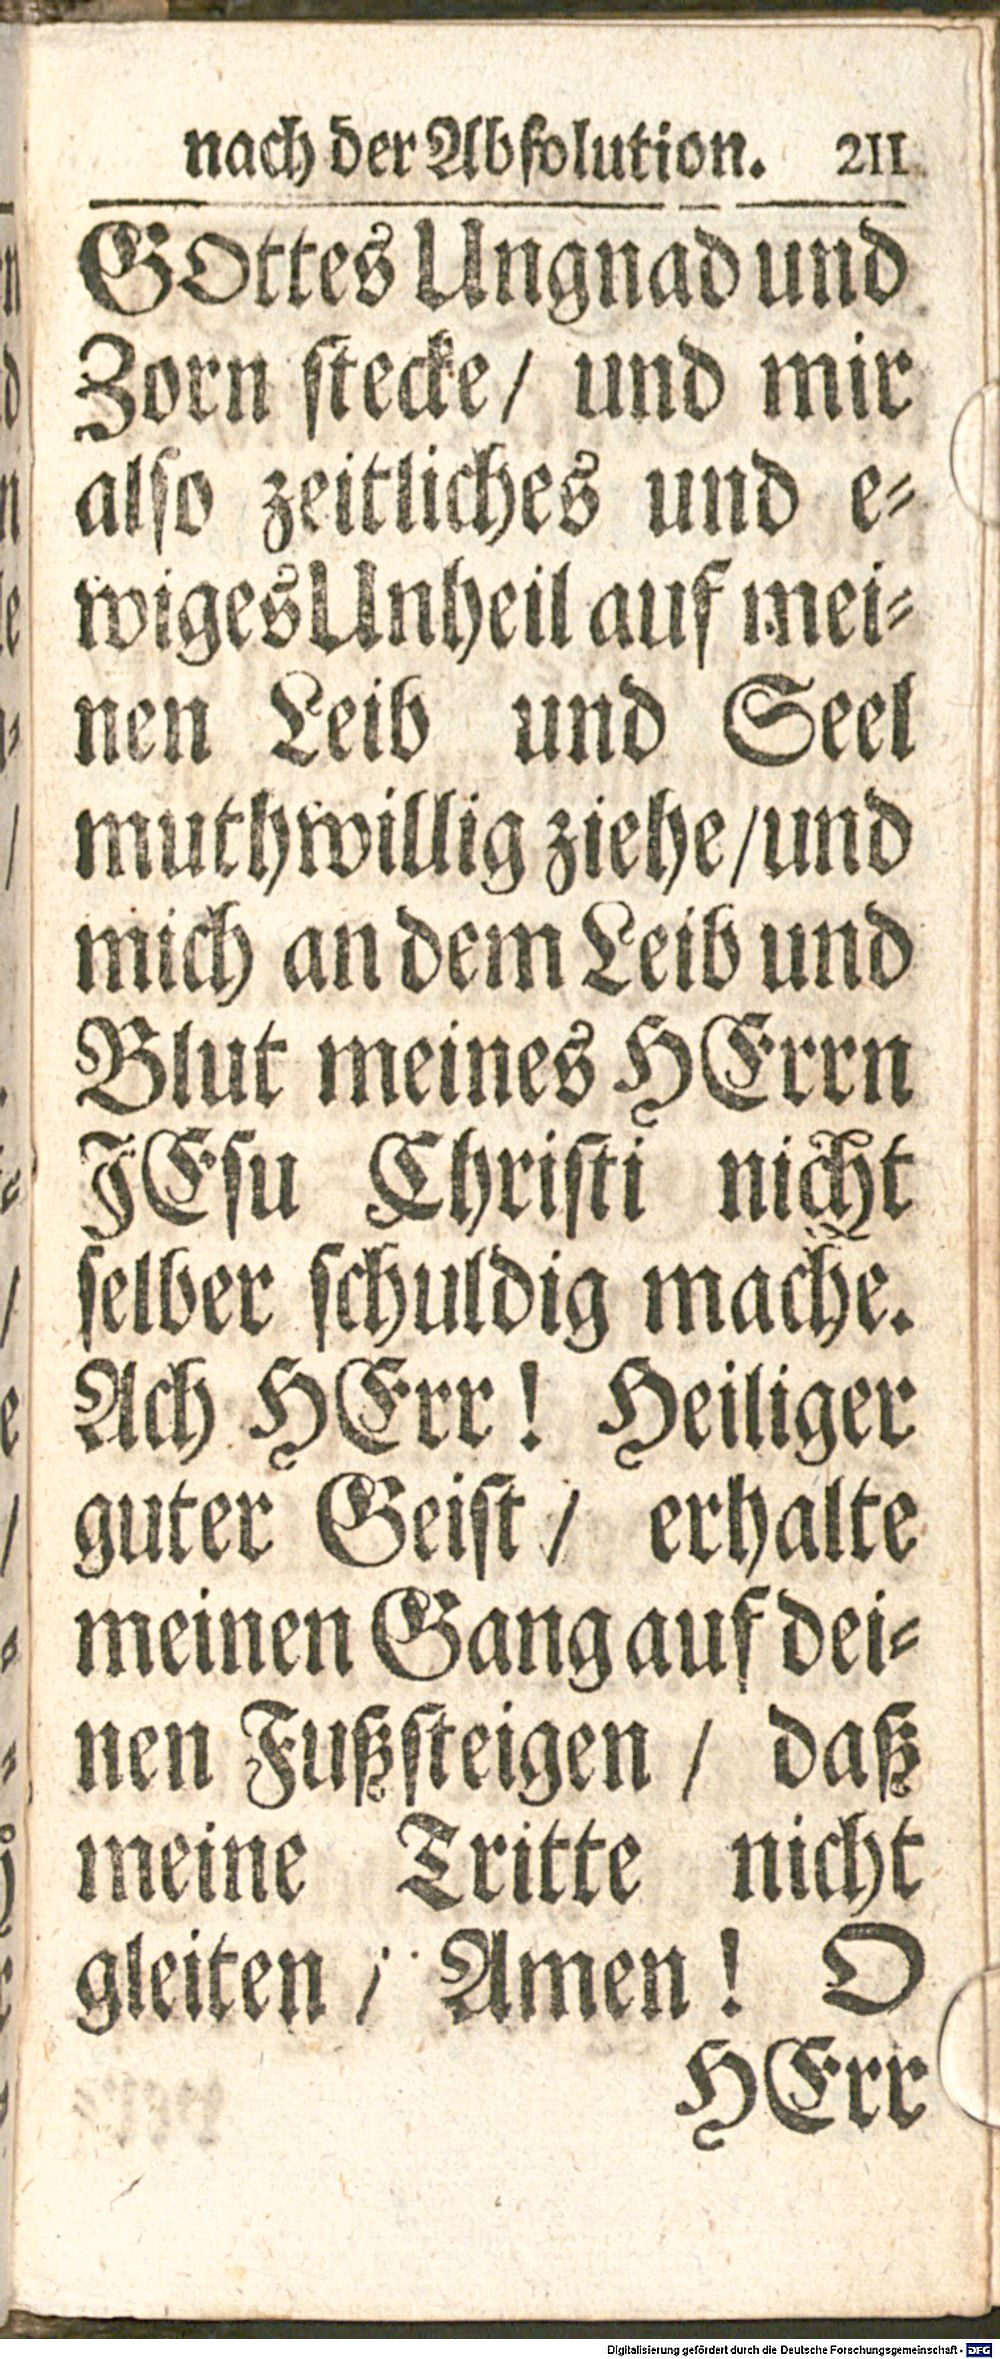 nach der Absolution. 211
GOttes Ungnad und
Zorn stecke / und mir
also zeitliches und e-
wiges Unheil auf mei-
nen Leib und Seel
muthwillig ziehe / und
mich an dem Leib und
Blut meines HErrn
JEsu Christi nicht
selber schuldig mache.
Ach HErr! Heiliger
guter Geist / erhalte
meinen Gang auf dei-
nen Fußsteigen / daß
meine Tritte nicht
gleiten / Amen! O
HErr
Digitalisierung gefördert durch die Deutsche Forschungsgemeinschaft - DFG